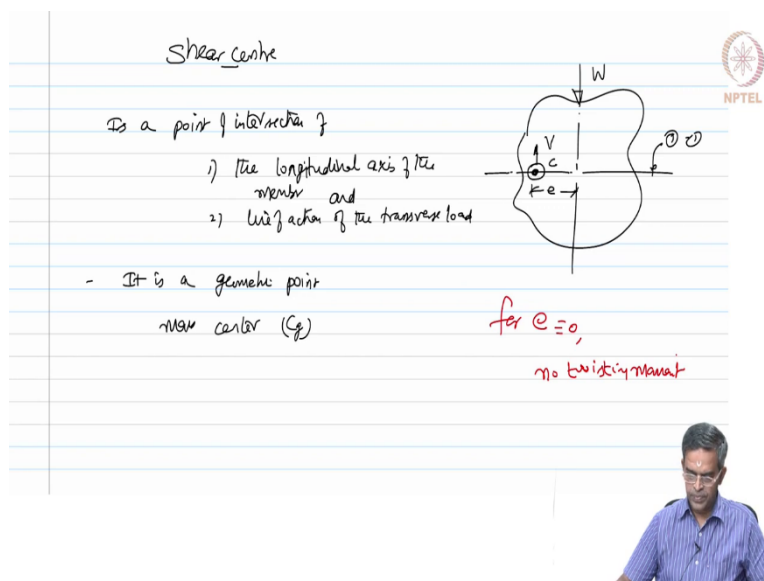 Shear centre
Is a point of intersection of
1) The longitudinal axis of the
member and
2) line of action of the transverse load
- It is a geometric point
mass center (Cg)
W
V
C
e
① ①
for e = 0,
no twisting moment
NPTEL